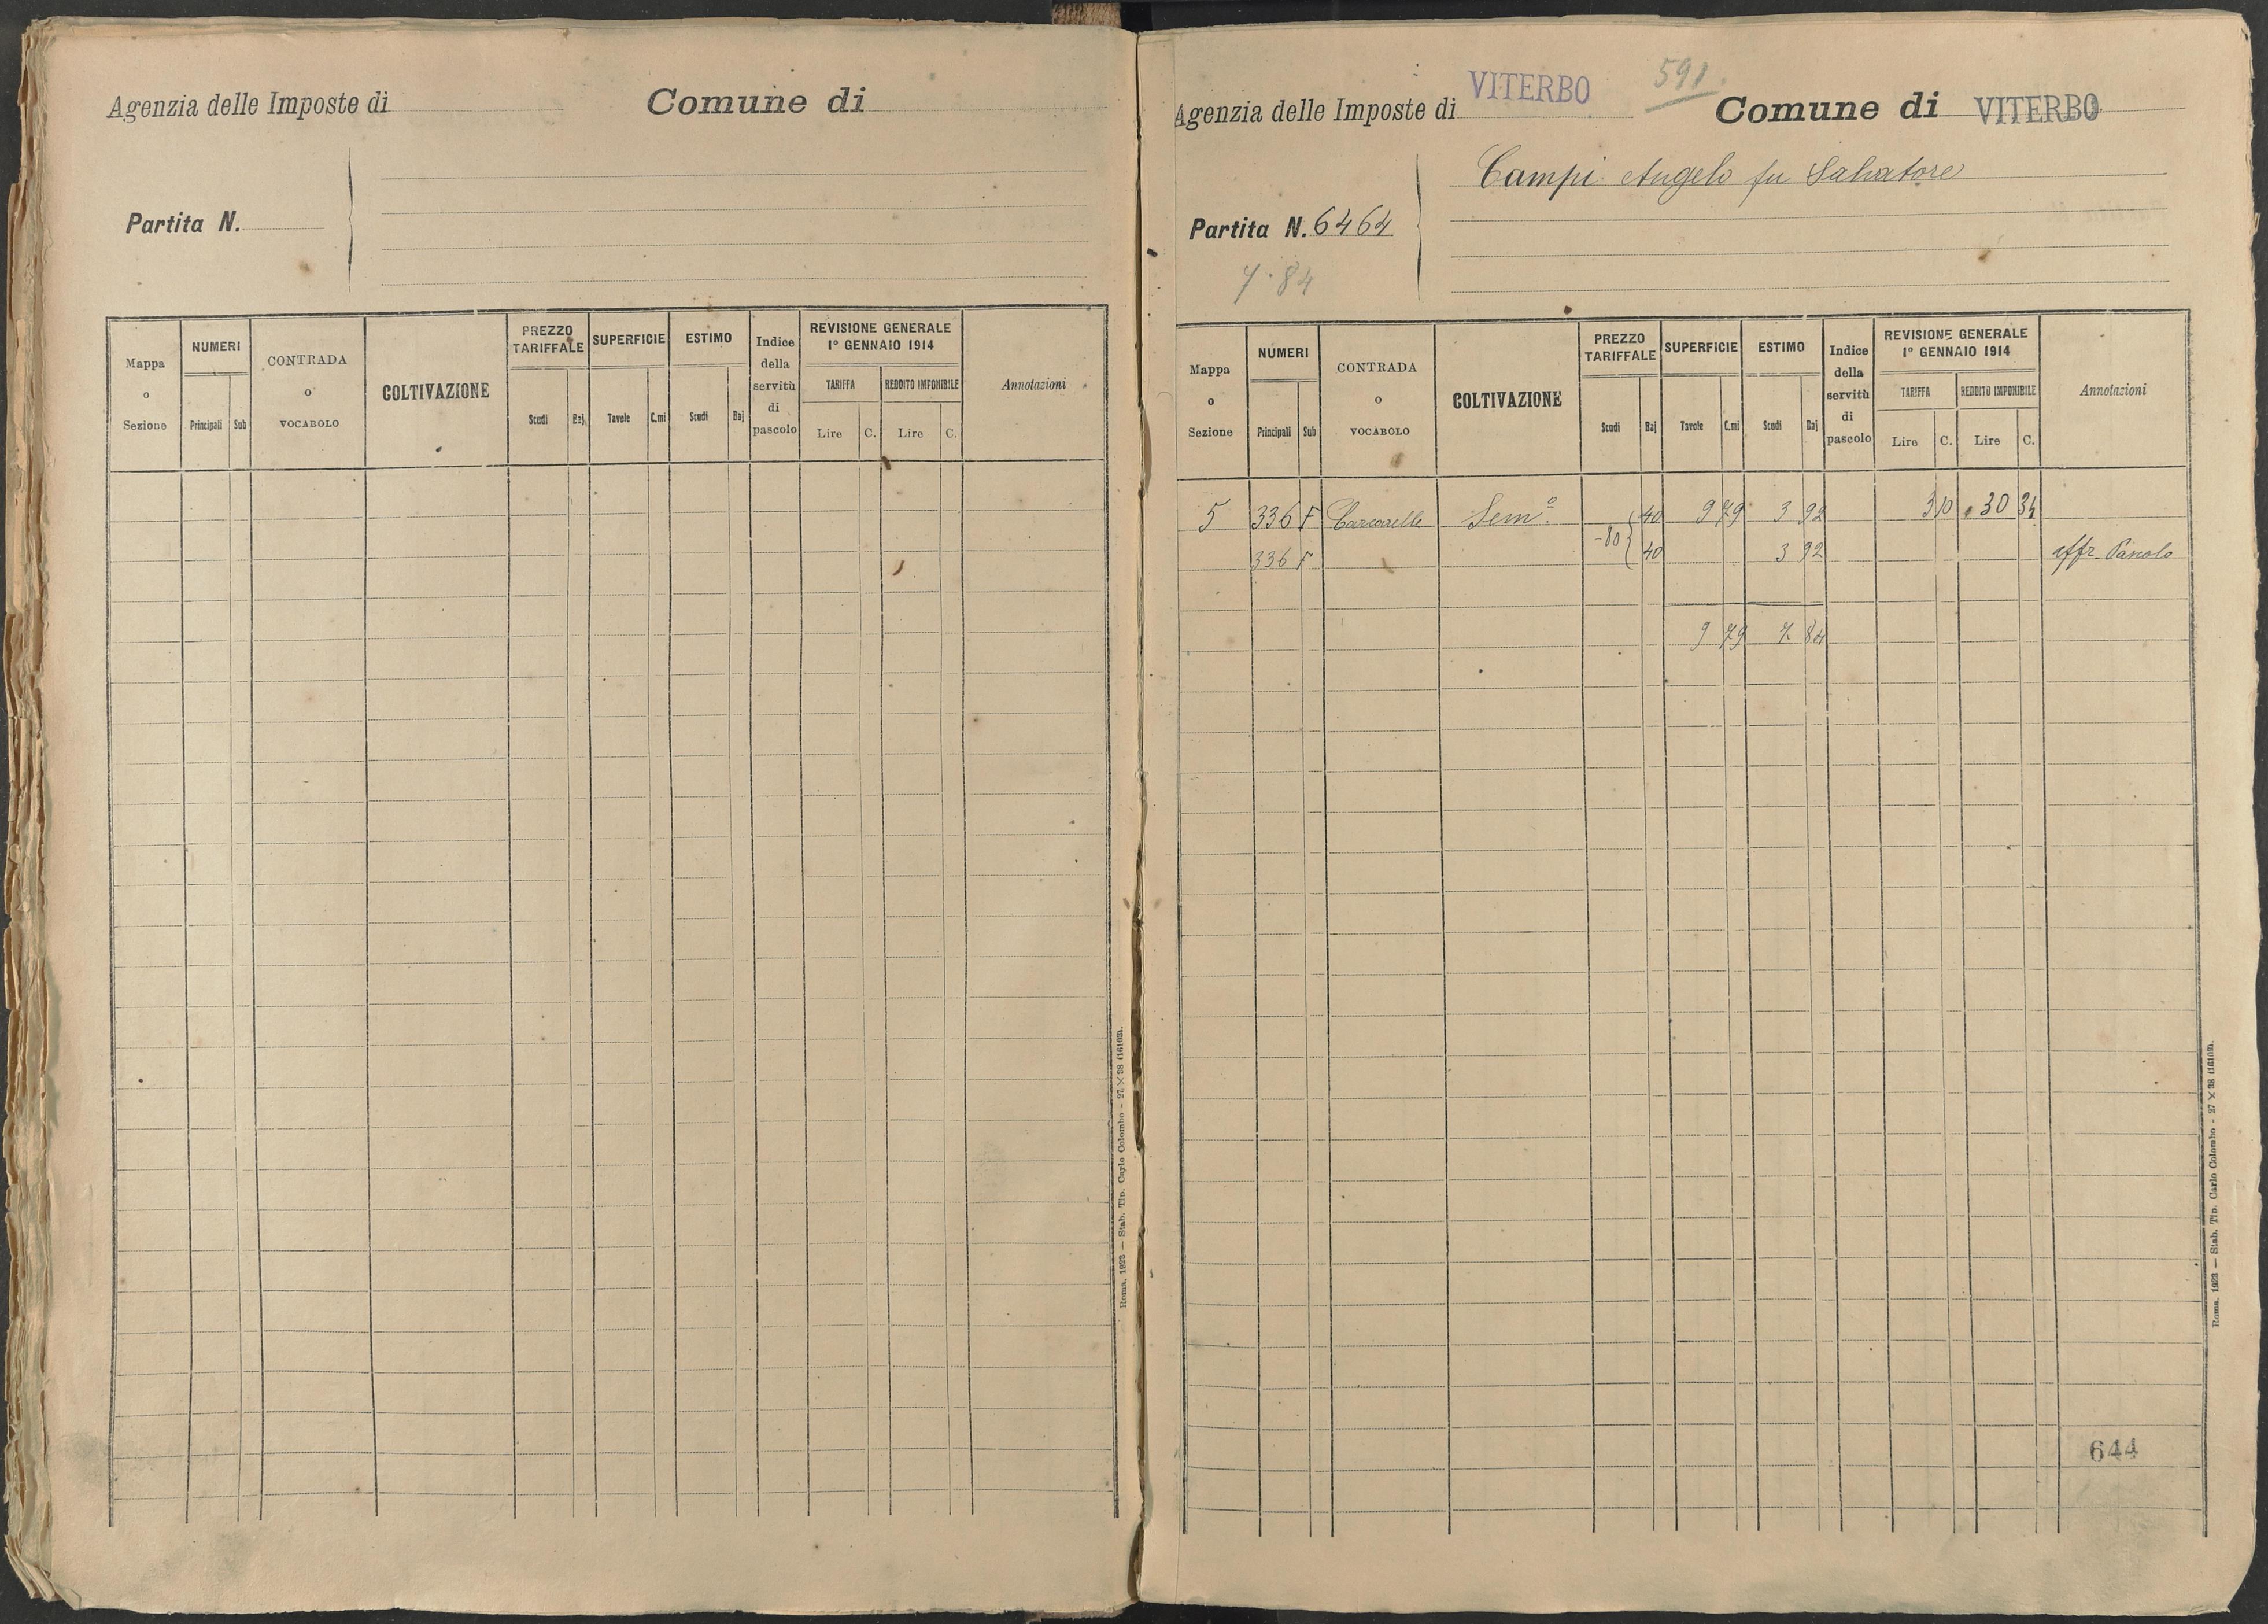 Agenzia delle Imposte di Comune di
Partita N.
Mappa o Sezione NUMERI Principali Sub CONTRADA o VOCABOLO COLTIVAZIONE PREZZO TARIFFALE Scudi Baj SUPERFICIE Tavole C.mi ESTIMO Scudi Baj Indice della servitù di pascolo REVISIONE GENERALE 1° GENNAIO 1914 TARIFFA Lire C. REDDITO IMPONIBILE Lire C. Annotazioni
Roma, 1923 — Stab. Tip. Carlo Colombo - 27 × 38 (16102).
591.
Agenzia delle Imposte di VITERBO Comune di VITERBO
Campi Angelo fu Salvatore
Partita N. 6464
7.84
Mappa o Sezione NUMERI Principali Sub CONTRADA o VOCABOLO COLTIVAZIONE PREZZO TARIFFALE Scudi Baj SUPERFICIE Tavole C.mi ESTIMO Scudi Baj Indice della servitù di pascolo REVISIONE GENERALE 1° GENNAIO 1914 TARIFFA Lire C. REDDITO IMPONIBILE Lire C. Annotazioni
5 336 F Semo. 40 9 79 3 92 3 10 30 34
-80
336 F 40 3 92 affr. Pascolo
9 79 7 84
644
Roma, 1923 — Stab. Tip. Carlo Colombo - 27 × 38 (16102).